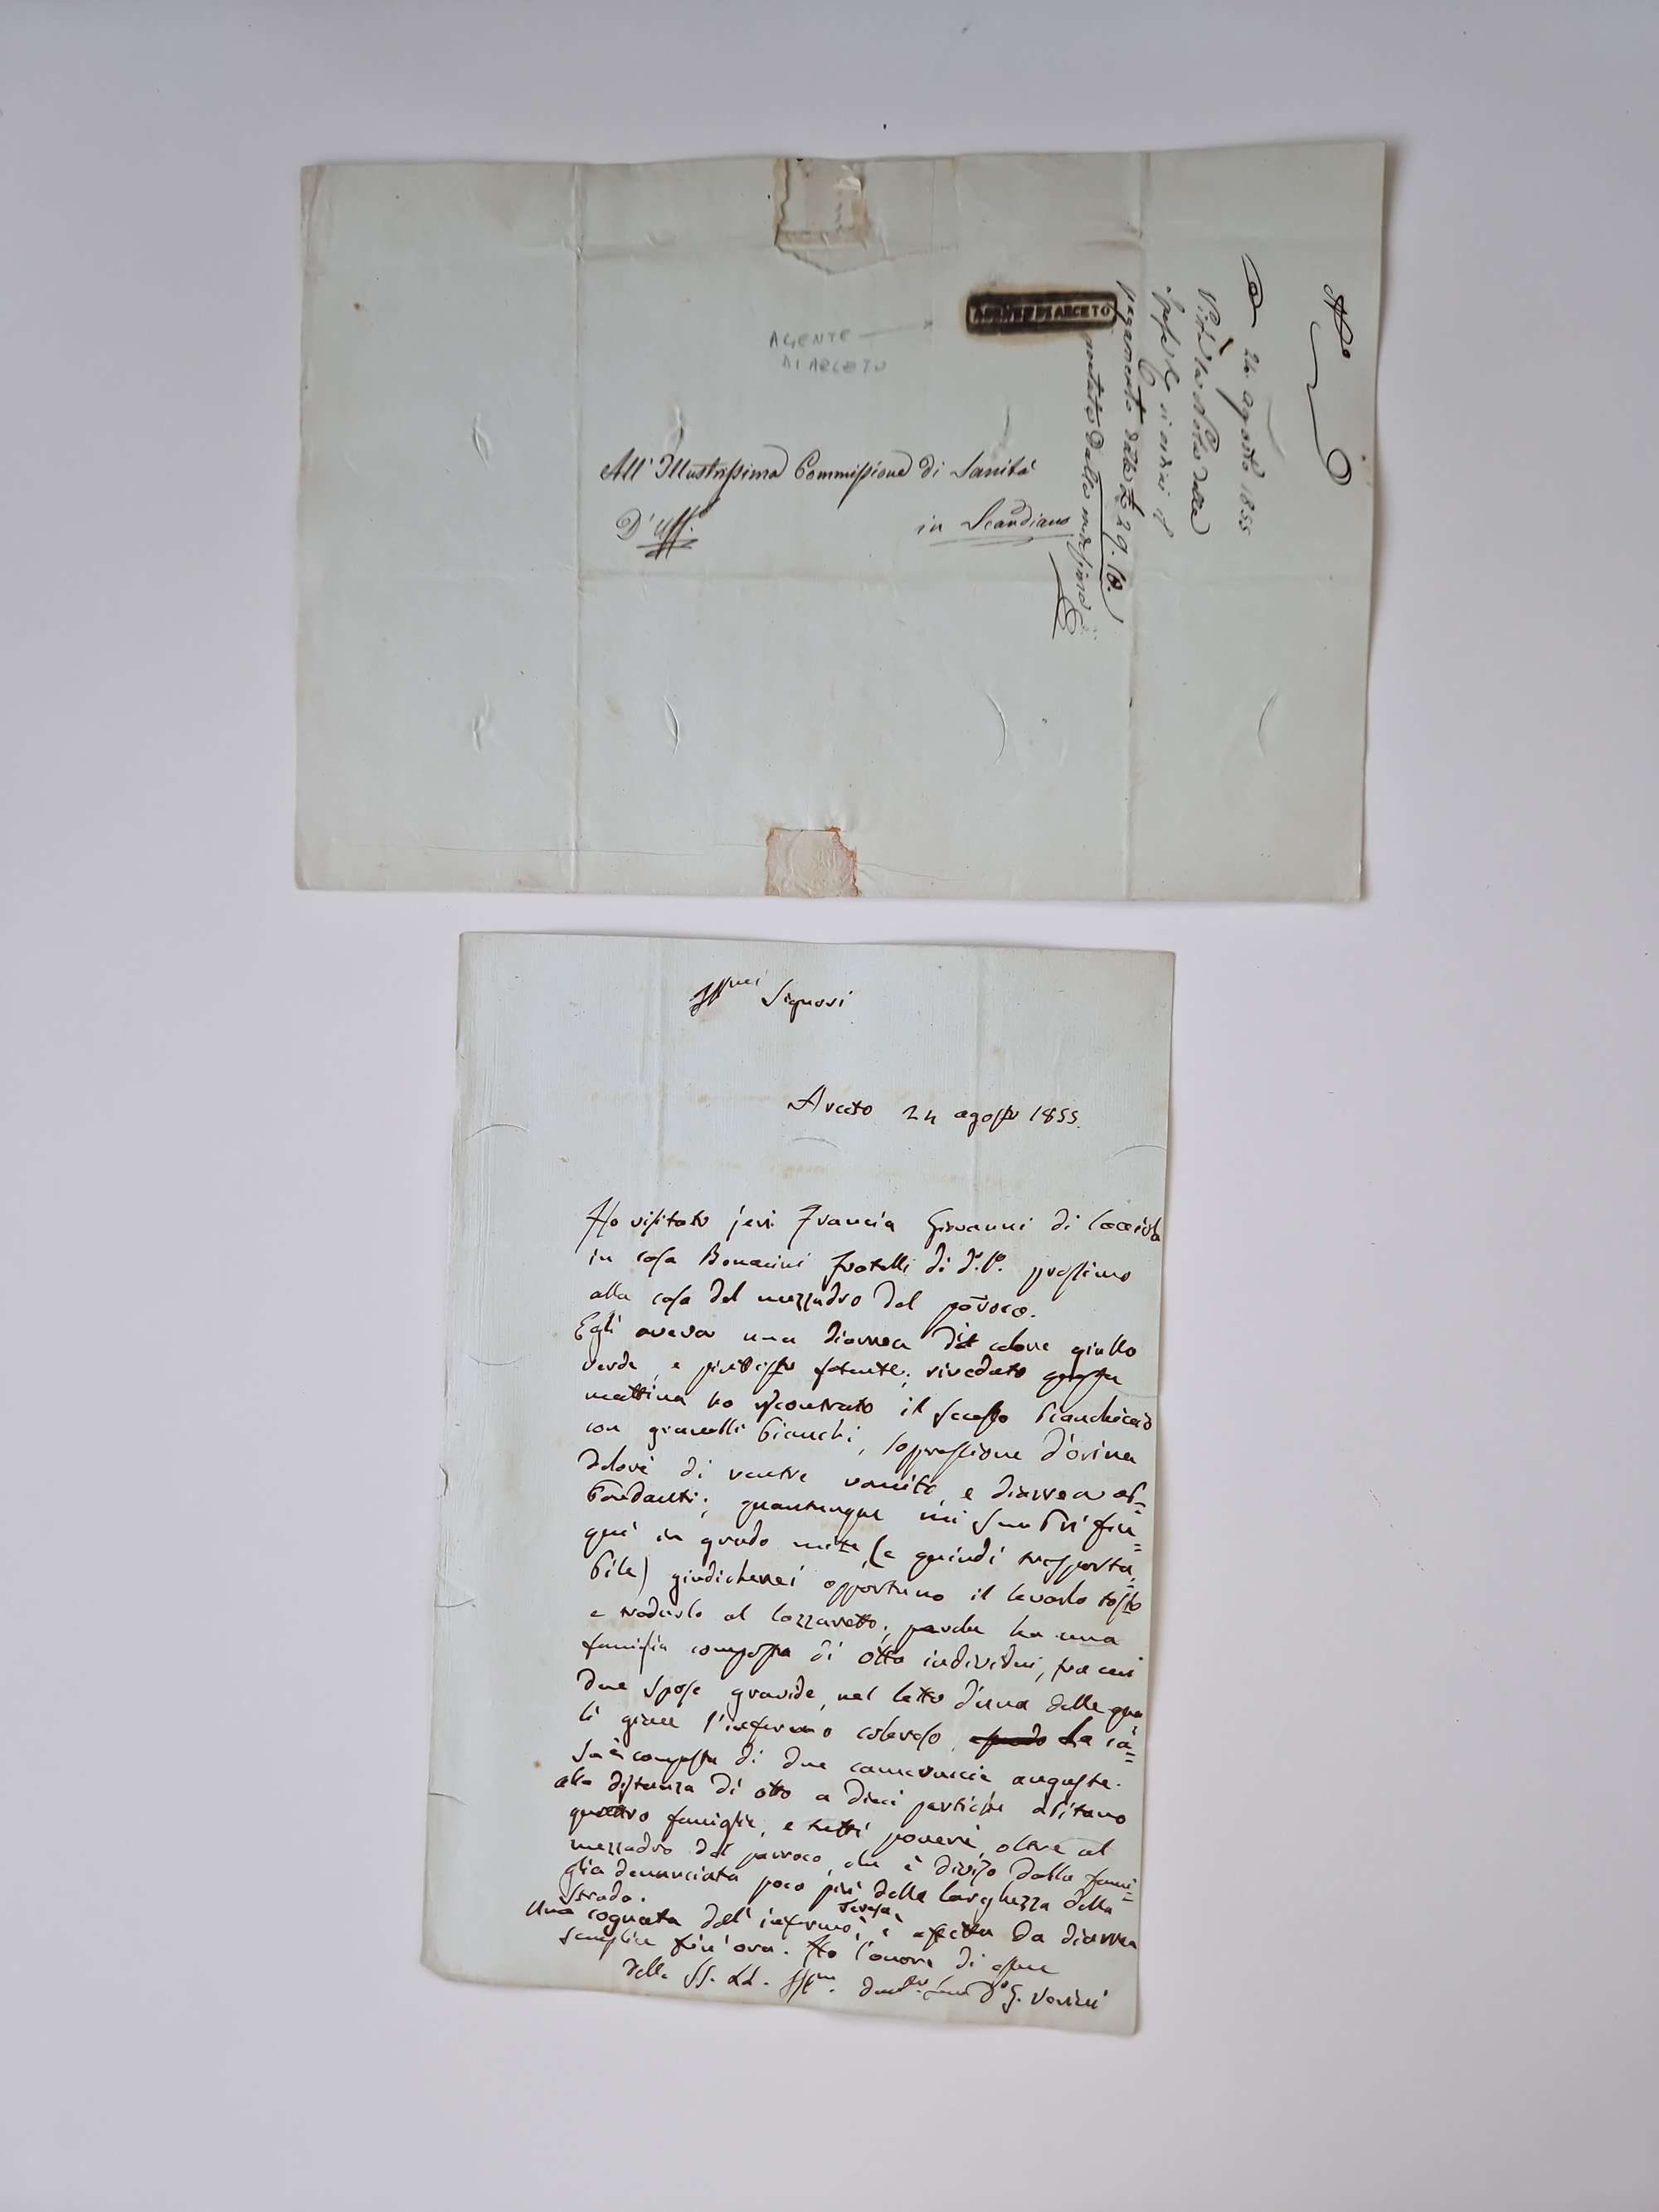 AGENTE DI ARCETO
AGENTE
DI ARCETO
All' Illustrissima Commissione di Sanità
D'Uff.º
in Scandiano
24 agosto 1855
Vista la Nota delle
Spese si ordini il
pagamento delle £ 29. 10.
portato dalla medesima
Ill.mi Signori
Arceto 24 agosto 1855.
Ho visitato jeri Francia Giovanni di Cacciola
in casa Bonacini fratelli di d.º l.º prossimo
alla casa del mezzadro del pároco.
Egli aveva una diarrea di colore giallo
verde, e piuttosto fetente; riveduto questa
mattina ho riscontrato il secesso biancheccio
con granelli bianchi, soppressione d'orina
dolori di ventre vomito, e diarrea ab=
bondanti; quantunque mi sembri fin=
qui in grado mite (e quindi trasporta=
bile) giudicherei opportuno il levarlo tosto
e tradurlo al lazzaretto; perche ha una
famiglia composta di otto individui, tra cui
due spose gravide, nel letto d'una delle qua
li giace l'infermo coleroso. La ca=
sa è composta di due cameruccie anguste.
alla distanza di otto a dieci pertiche abitano
quattro famiglie, e tutti poveri, oltre al
mezzadro del parroco, che è diviso dalla fami=
glia denunciata poco più della larghezza della
strada.
Una cognata dell' infermo, Teresa, è affetta da diarrea
semplice fin'ora. Ho l'onore di essere
delle SS. LL. Ill.me D.r G.